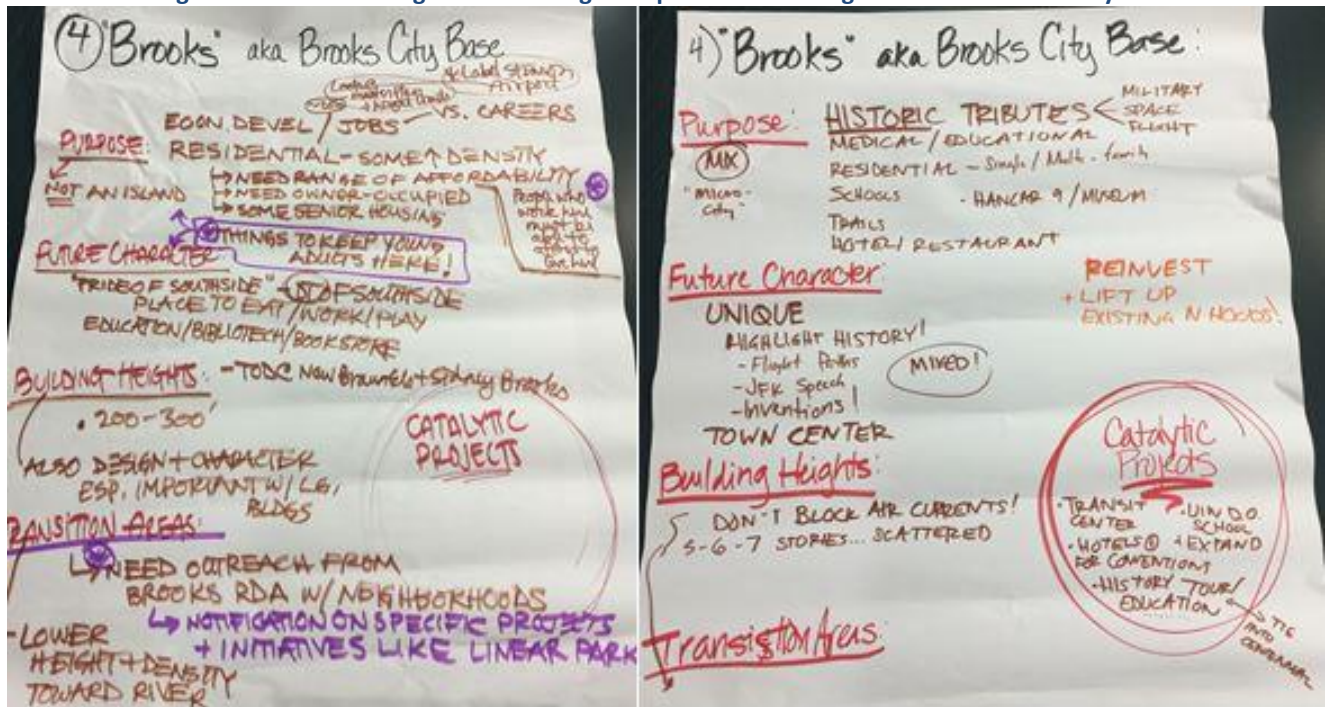 4 "Brooks" aka Brooks City Base
& Label Stinson
Airport
ECON. DEVEL / JOBS VS. CAREERS
PURPOSE:
RESIDENTIAL - SOME ↑ DENSITY
→ NEED RANGE OF AFFORDABILITY
NOT AN ISLAND
→ NEED OWNER-OCCUPIED
→ SOME SENIOR HOUSING
People who
work here
must be
able to
afford to
live here
THINGS TO KEEP YOUNG
ADULTS HERE!
FUTURE CHARACTER
"PRIDE OF SOUTHSIDE" OF SOUTHSIDE
PLACE TO EAT/WORK/PLAY
EDUCATION/BIBLIOTECH/BOOKSTORE
BUILDING HEIGHTS: - TODC New Braunfels + Sidney Brooks
• 200-300'
ALSO DESIGN + CHARACTER
ESP. IMPORTANT W/ LG.
BLDGS
CATALYTIC
PROJECTS
TRANSITION AREAS:
↳ NEED OUTREACH FROM
BROOKS RDA W/ NEIGHBORHOODS
↳ NOTIFICATION ON SPECIFIC PROJECTS
+ INITIATIVES LIKE LINEAR PARK
- LOWER
HEIGHT + DENSITY
TOWARD RIVER
4) "Brooks" aka Brooks City Base:
Purpose:
MIX
"Micro-
City"
HISTORIC TRIBUTES < MILITARY
SPACE
FLIGHT
MEDICAL / EDUCATIONAL
RESIDENTIAL - Single / Multi-family
SCHOOLS - HANGAR 9 / MUSEUM
TRAILS
HOTEL / RESTAURANT
Future Character:
UNIQUE
HIGHLIGHT HISTORY!
- Flight Paths
- JFK Speech
- Inventions!
TOWN CENTER
MIXED!
REINVEST
+ LIFT UP
EXISTING N HOODS!
Building Heights:
DON'T BLOCK AIR CURRENTS!
5-6-7 STORIES... SCATTERED
Transistion Areas:
Catalytic
Projects
• TRANSIT
CENTER
• UIW D.O.
SCHOOL
+ EXPAND
• HOTELS
FOR CONVENTIONS
- HISTORY TOUR/
EDUCATION
TIE
INTO
CENTENNIAL